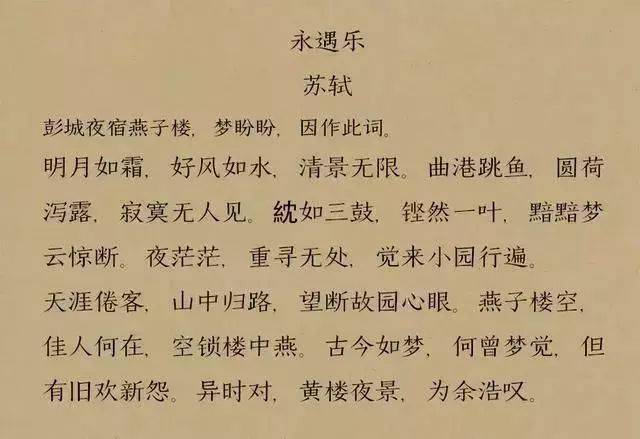 永遇乐
苏轼
彭城夜宿燕子楼，梦盼盼，因作此词。
明月如霜，好风如水，清景无限。曲港跳鱼，圆荷
泻露，寂寞无人见。紞如三鼓，铿然一叶，黯黯梦
云惊断。夜茫茫，重寻无处，觉来小园行遍。
天涯倦客，山中归路，望断故园心眼。燕子楼空，
佳人何在，空锁楼中燕。古今如梦，何曾梦觉，但
有旧欢新怨。异时对，黄楼夜景，为余浩叹。